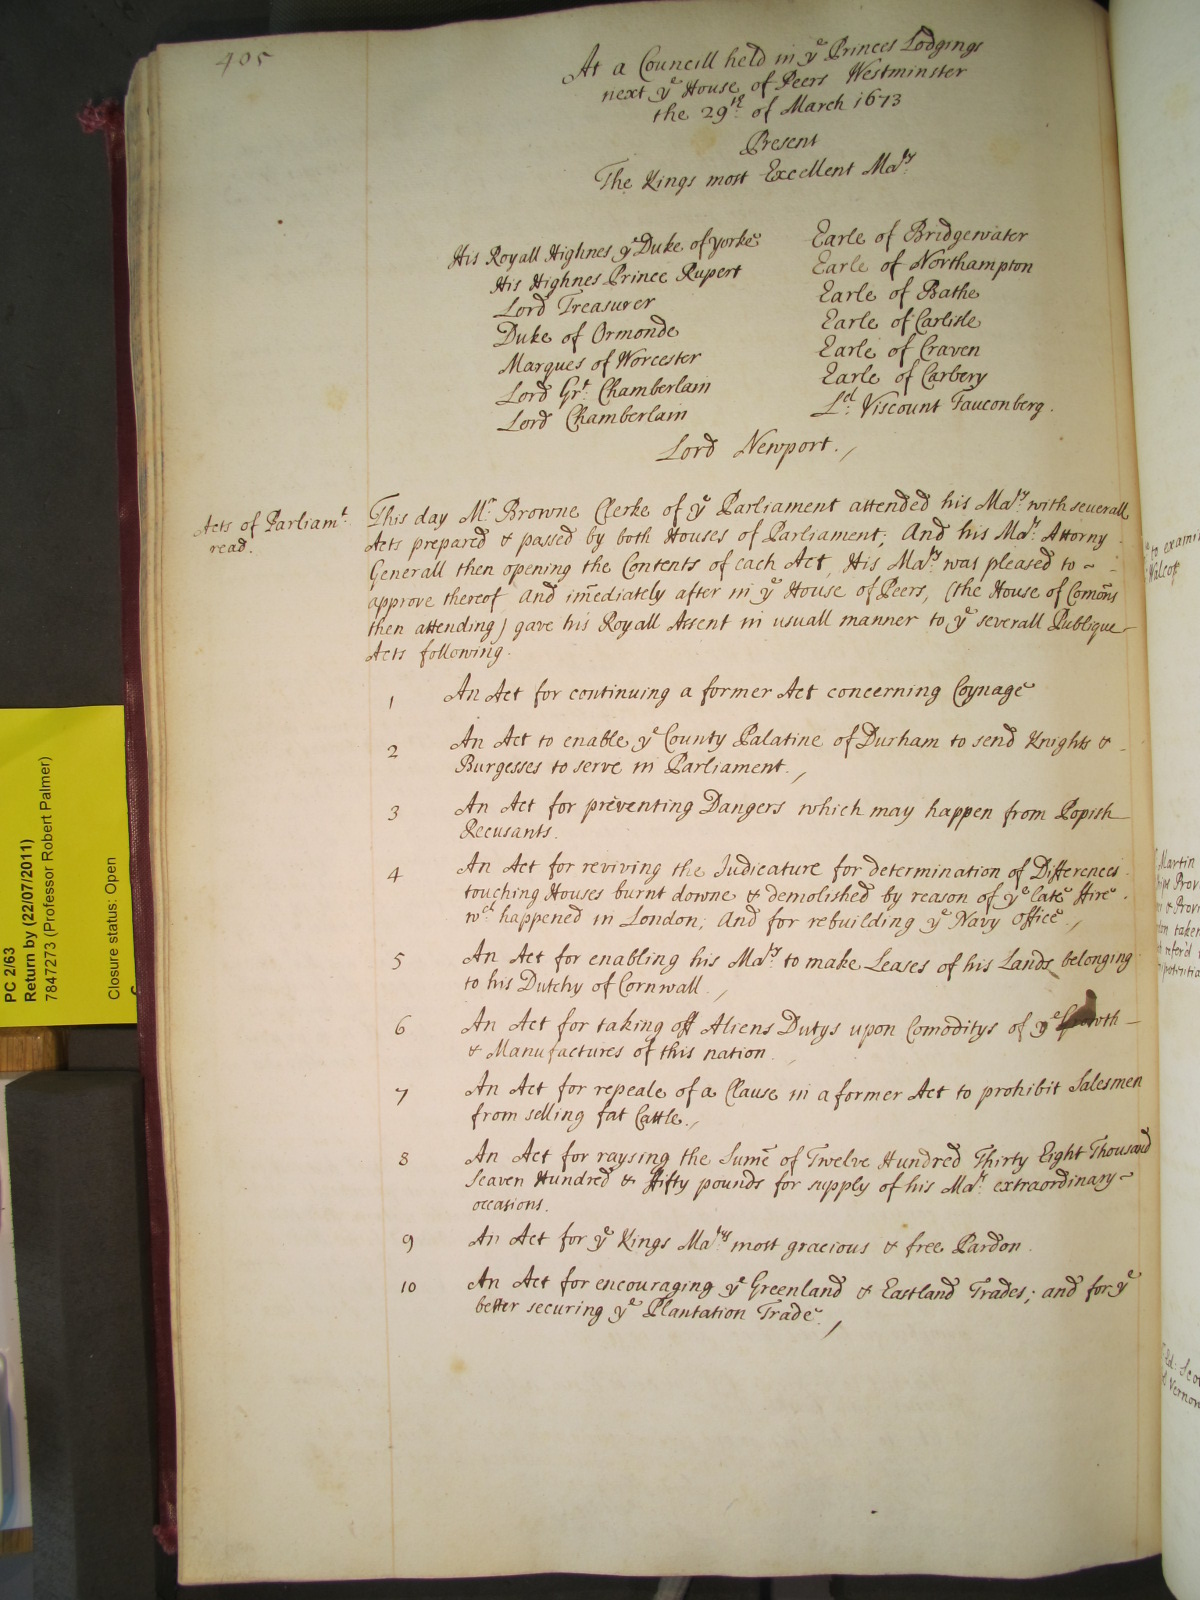 405
At a Councill held in yᵉ Princes Lodgings
next yᵉ House of Peers Westminster
the 29ᵗʰ: of March 1673
Present
The Kings most Excellent Maᵗʸ:
His Royall Highnes yᵉ Duke of yorke
His Highnes Prince Rupert
Lord Treasurer
Duke of Ormonde
Marques of Worcester
Lord Grᵗ: Chamberlain
Lord Chamberlain
Earle of Bridgewater
Earle of Northampton
Earle of Bathe
Earle of Carlisle
Earle of Craven
Earle of Carbery
Lᵈ: Viscount Fauconberg.
Lord Newport./
Acts of Parliamᵗ:
read.
This day Mʳ: Browne Clerke of yᵉ Parliament attended his Maᵗʸ: with severall
Acts prepared & passed by both Houses of Parliament; And his Maᵗˢ: Attorny
Generall then opening the Contents of each Act, His Maᵗʸ: was pleased to ~ -
approve thereof, and im̄ediately after in yᵉ House of Peers, (the House of Com̄ons
then attending) gave his Royall Assent in usuall manner to yᵉ severall Publique
Acts following.
1 An Act for continuing a former Act concerning Coynage
2 An Act to enable yᵉ County Palatine of Durham to send Knights & -
Burgesses to serve in Parliament./
3 An Act for preventing Dangers which may happen from Popish
Recusants.
4 An Act for reviving the Judicature for determination of Differences
touching Houses burnt downe & demolished by reason of yᵉ late Fire.
wᶜʰ: happened in London; And for rebuilding yᵉ Navy office./
5 An Act for enabling his Maᵗʸ: to make Leases of his Lands belonging
to his Dutchy of Cornwall./
6 An Act for taking off Aliens Dutys upon Comoditys of yᵉ Growth -
& Manufactures of this nation./
7 An Act for repeale of a Clause in a former Act to prohibit Salesmen
from selling fat Cattle./
8 An Act for raysing the Sum̄e of Twelve Hundred Thirty Eight Thousand
Seaven Hundred & ffifty pounds for supply of his Maᵗˢ: extraordinary ~
occasions.
9 An Act for yᵉ Kings Maᵗʸˢ most gracious & free Pardon.
10 An Act for encouraging yᵉ Greenland & Eastland Trades; and for yᵉ
better securing yᵉ Plantation Trade./
PC 2/63
Return by (22/07/2011)
7847273 (Professor Robert Palmer)
Closure status: Open
to examin
Walcop
Martin
Prov
& Provi
taken